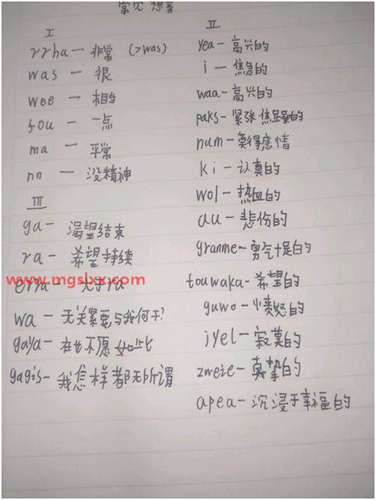 常见想音
I
rrha — 非常 (>was)
was — 很
wee — 相当
fou — 一点
ma — 平常
nn — 没精神
III
ga — 渴望结束
ra — 希望持续
erra — 大于ra
www.mgsbxx.com
wa — 无关累要与我何干?
gaya — 在也不愿如此
gagis — 我怎样都无所谓
II
yea — 高兴的
i — 焦急的
waa — 高兴的
paks — 紧张焦虑的
num — 莫得感情
ki — 认真的
wol — 热血的
au — 悲伤的
granme — 勇气十足的
touwaka — 希望的
guwo — 愤怒的
jyel — 寂寞的
zweie — 真挚的
apea — 沉浸于幸福的